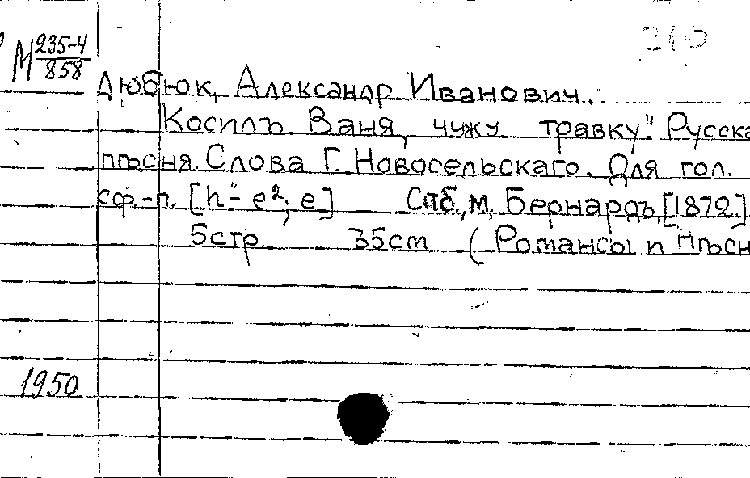 М 235-4
858
310
Дюбюк, Александр Иванович.
Косилъ Ваня, чужу травку." Русска
пѣсня. Слова Г. Новосельскаго. Для гол.
сф.-п. [h-e²; e] Спб., М. Бернардъ, [1872.]
5стр 35cm (Романсы и пѣсн
1950